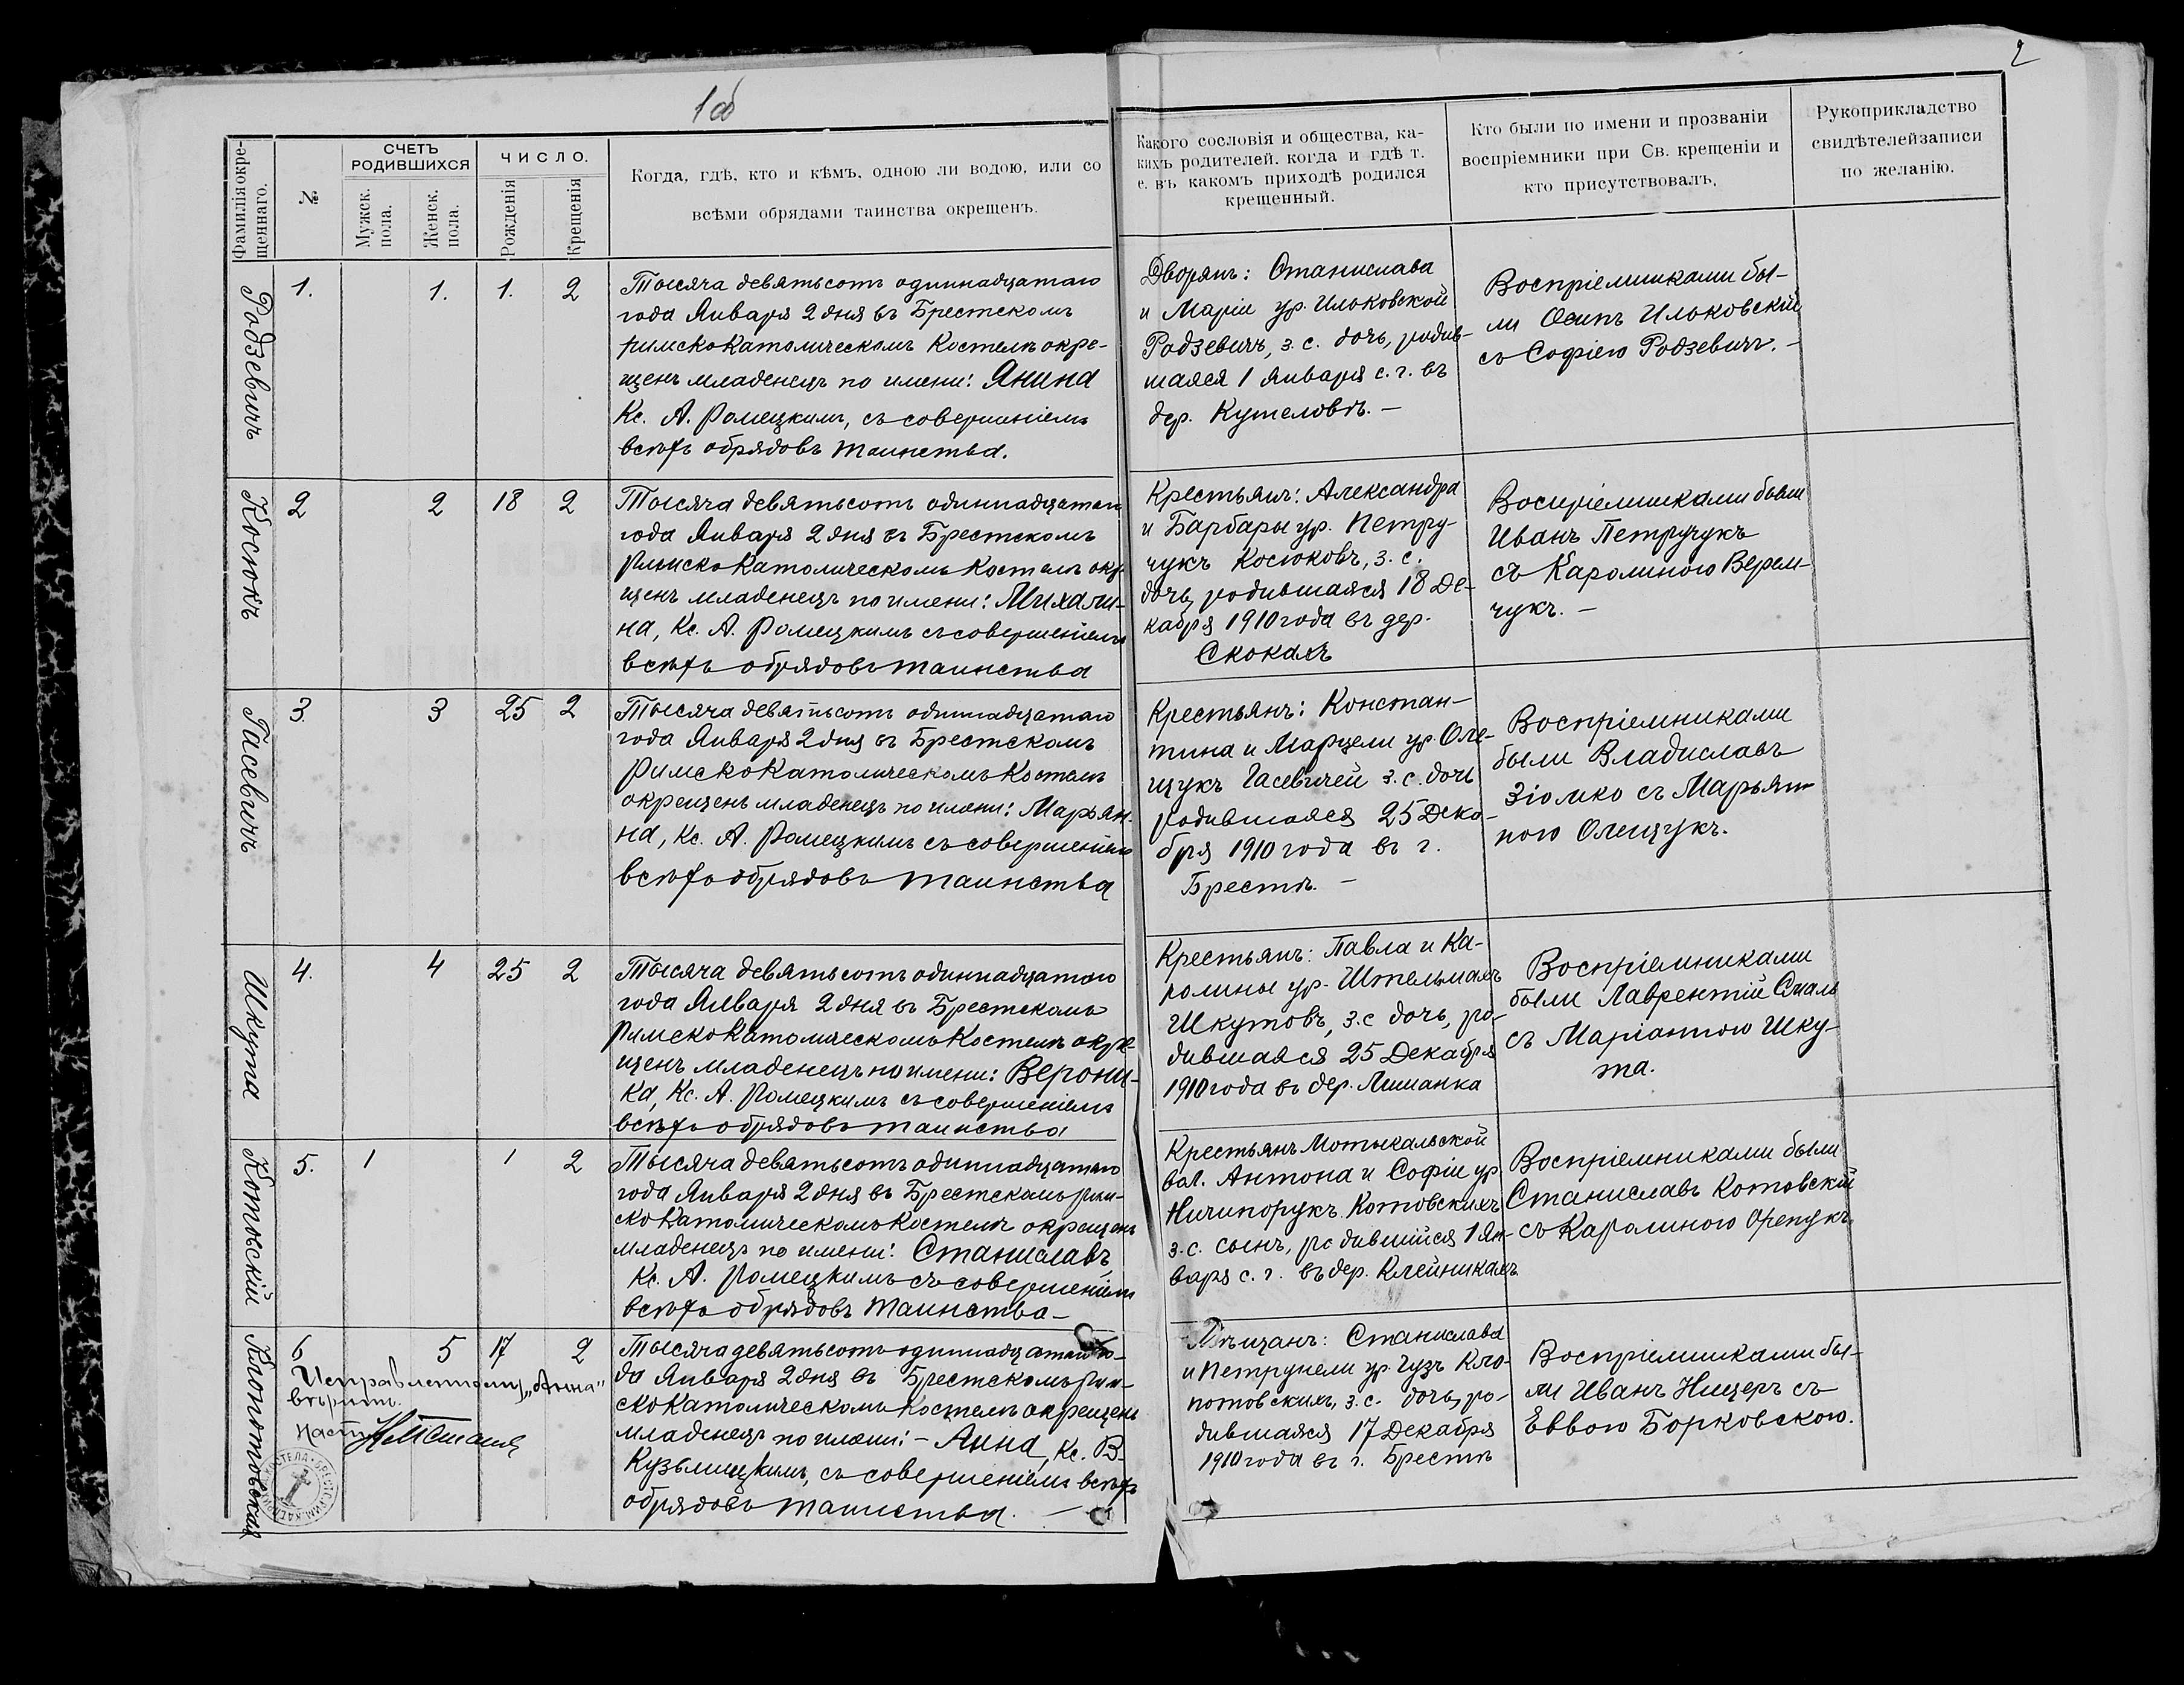 1об
2
Фамилія окре-
щеннаго.
№
СЧЕТЪ
РОДИВШИХСЯ
Мужск.
пола.
Женск.
пола.
ЧИСЛО.
Рожденія
Крещенія
Когда, гдѣ, кто и кѣмъ, одною ли водою, или со
всѣми обрядами таинства окрещенъ.
Какого сословія и общества, ка-
кихъ родителей. когда и гдѣ т.
е. въ какомъ приходѣ родился
крещенный.
Кто были по имени и прозванію
воспріемники при Св. крещеніи и
кто присутствовалъ,
Рукоприкладство
свидѣтелей записи
по желанію.
Родзевичъ
1.
1.
1.
2
Тысяча девятьсотъ одиннадцатаго
года Января 2 дня въ Брестскомъ
римско Католическомъ Костелѣ окре-
щенъ младенецъ по имени: Янина
Кс. А. Ромецкимъ, съ совершеніемъ
всѣхъ обрядовъ таинства.
Дворянъ: Станислава
и Маріи ур. Ильковской
Родзевичъ, з. с. дочь, родив-
шаяся 1 Января с. г. въ
дер. Кутеловѣ. —
Воспріемниками бы-
ли Осипъ Ильковскій
съ Софіею Родзевичъ. -
Косюкъ
2
2
18
2
Тысяча девятьсотъ одиннадцатаго
года Января 2 дня въ Брестскомъ
Римско Католическомъ Костелѣ окре-
щенъ младенецъ по имени: Михали-
на, Кс. А. Ромецкимъ съ совершеніемъ
всѣхъ обрядовъ таинства
Крестьянъ: Александра
и Барбары ур. Петру-
чукъ Косюковъ, з. с.
дочь, родившаяся 18 Де-
кабря 1910 года въ дер.
Скокахъ
Воспріемниками были
Иванъ Петручукъ
съ Каролиною Верем-
чукъ. —
Гасевичъ
3.
3
25
2
Тысяча девятьсотъ одиннадцатаго
года Января 2 дня въ Брестскомъ
Римско Католическомъ Костелѣ
окрещенъ младенецъ по имени: Марьян-
на, Кс. А. Ромецкимъ съ совершеніемъ
всѣхъ обрядовъ таинства
Крестьянъ: Констан-
тина и Марцели ур. Оле-
щукъ Гасевичей з. с. дочь
родившаяся 25 Дека-
бря 1910 года въ г.
Брестѣ. —
Воспріемниками
были Владиславъ
Зіомко съ Марьян-
ною Олещукъ.
Шкута
4.
4
25
2
Тысяча девятьсотъ одиннадцатаго
года Января 2 дня въ Брестскомъ
Римско Католическомъ Костелѣ окре-
щенъ младенецъ по имени: Верони-
ка, Кс. А. Ромецкимъ съ совершеніемъ
всѣхъ обрядовъ таинства
Крестьянъ: Павла и Ка-
ролины ур. Штельмахъ
Шкутовъ, з. с дочь, ро-
дившаяся 25 Декабря
1910 года въ дер. Лишанка
Воспріемниками
были Лаврентій Смаль
съ Маріанною Шку-
та.
Котовскій
5.
1
1
2
Тысяча девятьсотъ одиннадцатаго
года Января 2 дня въ Брестскомъ рим-
ско Католическомъ Костелѣ окрещенъ
младенецъ по имени: Станиславъ
Кс. А. Ромецкимъ съ совершеніемъ
всѣхъ обрядовъ таинства —
Крестьянъ Мотыкальской
вол. Антона и Софіи ур
Ничипорукъ Котовскихъ
з. с. сынъ, родившійся 1 Ян-
варя с. г. въ дер. Клейникахъ
Воспріемниками были
Станиславъ Котовскій
съ Каролиною Орепукъ
Клопотовская
6
5
17
2
Исправленному „Анна"
вѣрить.
Тысяча девятьсотъ одиннадцатаго го-
да Января 2 дня въ Брестскомъ рим-
ско Католическомъ Костелѣ окрещенъ
младенецъ по имени: — Анна, Кс. В.
Кузьмицкимъ, съ совершеніемъ всѣхъ
обрядовъ таинства. —
Мѣщанъ: Станислава
и Петрунели ур. Гузъ Кло-
потовскихъ, з. с. дочь, ро-
дившаяся 17 Декабря
1910 года въ г. Брестѣ
Воспріемниками бы-
ли Иванъ Ницеръ съ
Еввою Борковскою.